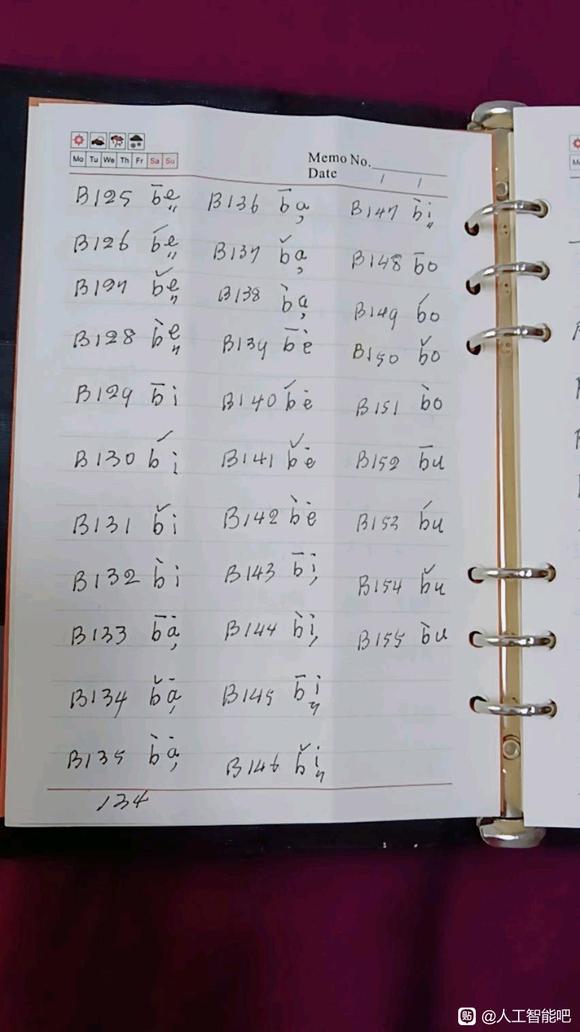 Mo Tu We Th Fr Sa Su
Memo No.
Date / /
B125 b̄ę̈
B126 b́ę̈
B127 b̌e̤
B128 b̀e̤
B129 b̄i
B130 b́i
B131 b̌i
B132 b̀i
B133 b̄ȧ,
B134 b̌ȧ,
B135 b̀ȧ,
134
B136 b̄a,
B137 b̌a,
B138 b̀a,
B139 b̄ė
B140 b́ė
B141 b̌ė
B142 b̀ė
B143 b̄i,
B144 b̀i,
B145 b̄i̤
B146 b̌i̤
B147 b̀i̤
B148 b̄o
B149 b́o
B150 b̌o
B151 b̀o
B152 b̄u
B153 b́u
B154 b̌u
B155 b̀u
貼 @人工智能吧